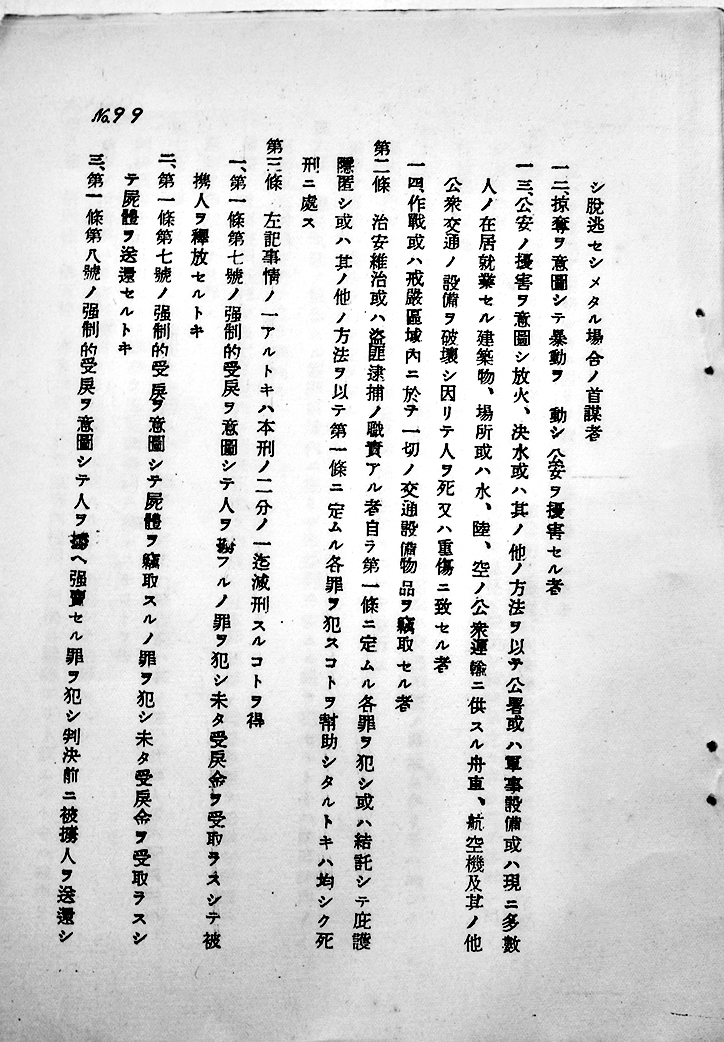 No.99
シ脫逃セシメタル場合ノ首謀者
一二、掠奪ヲ意圖シテ暴動ヲ 動シ公安ヲ擾害セル者
一三、公安ノ擾害ヲ意圖シ放火、決水或ハ其ノ他ノ方法ヲ以テ公署或ハ軍事設備或ハ現ニ多數
人ノ在居就業セル建築物、場所或ハ水、陸、空ノ公衆運輸ニ供スル舟車、航空機及其ノ他
公衆交通ノ設備ヲ破壞シ因リテ人ヲ死又ハ重傷ニ致セル者
一四、作戰或ハ戒嚴區域內ニ於テ一切ノ交通設備物品ヲ竊取セル者
第二條 治安維治或ハ盜匪逮捕ノ職責アル者自ラ第一條ニ定ムル各罪ヲ犯シ或ハ結託シテ庇護
隱匿シ或ハ其ノ他ノ方法ヲ以テ第一條ニ定ムル各罪ヲ犯スコトヲ幇助シタルトキハ均シク死
刑ニ處ス
第三條 左記事情ノ一アルトキハ本刑ノ二分ノ一迄減刑スルコトヲ得
一、第一條第七號ノ强制的受戾ヲ意圖シテ人ヲ フルノ罪ヲ犯シ未タ受戾金ヲ受取ラスシテ被
携人ヲ釋放セルトキ
二、第一條第七號ノ强制的受戾ヲ意圖シテ屍體ヲ竊取スルノ罪ヲ犯シ未タ受戾金ヲ受取ラスシ
テ屍體ヲ送還セルトキ
三、第一條第八號ノ强制的受戾ヲ意圖シテ人ヲ擄ヘ强賣セル罪ヲ犯シ判決前ニ被擄人ヲ送還シ